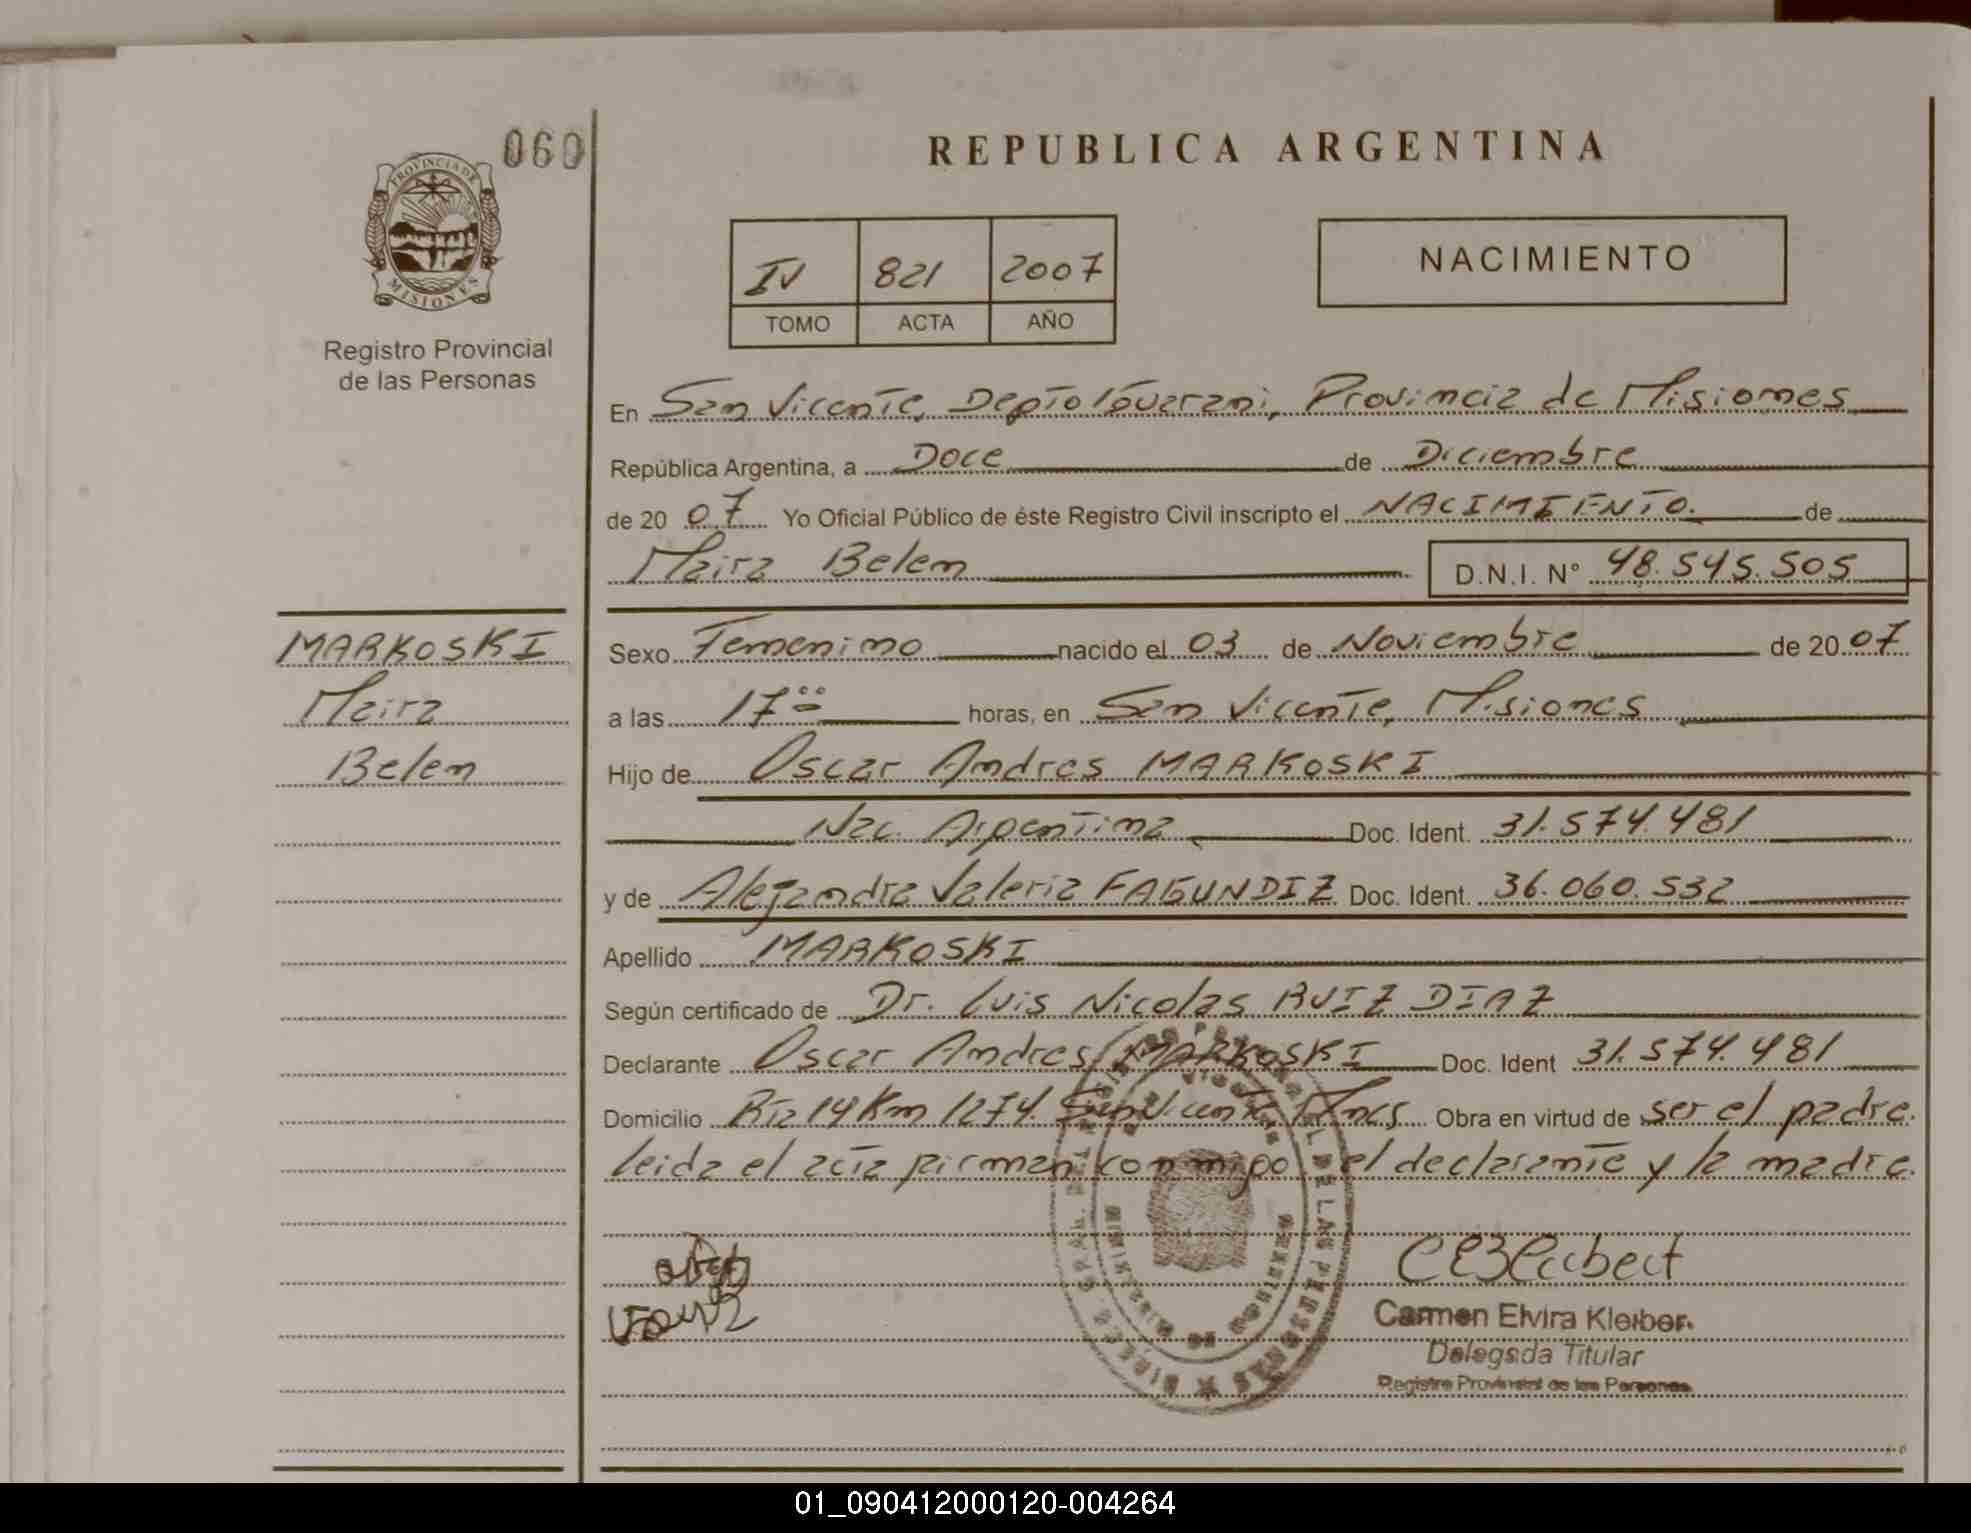 060
PROVINCIA DE
MISIONES
Registro Provincial
de las Personas
REPUBLICA ARGENTINA
IV 821 2007
TOMO ACTA AÑO
NACIMIENTO
En San Vicente, Depto Guarani, Provincia de Misiones
República Argentina, a Doce de Diciembre
de 20 07 Yo Oficial Público de éste Registro Civil inscripto el NACIMIENTO. de
Maira Belen D.N.I. N° 48.545.505
MARKOSKI
Maira
Belen
Sexo Femenino nacido el 03 de Noviembre de 20 07
a las 17 00 horas, en San Vicente, Misiones
Hijo de Oscar Andres MARKOSKI
Nac. Argentina Doc. Ident. 31.574.481
y de Alejandra Valeria FAGUNDIZ Doc. Ident. 36.060.532
Apellido MARKOSKI
Según certificado de Dr. Luis Nicolas RUIZ DIAZ
Declarante Oscar Andres MARKOSKI Doc. Ident 31.574.481
Domicilio Rta 14 Km 1274. San Vicente Mnes Obra en virtud de ser el padre.
leida el acta firman conmigo el declarante y la madre.
Carmen Elvira Kleiber.
Delegada Titular
Registro Provincial de las Personas
01_090412000120-004264